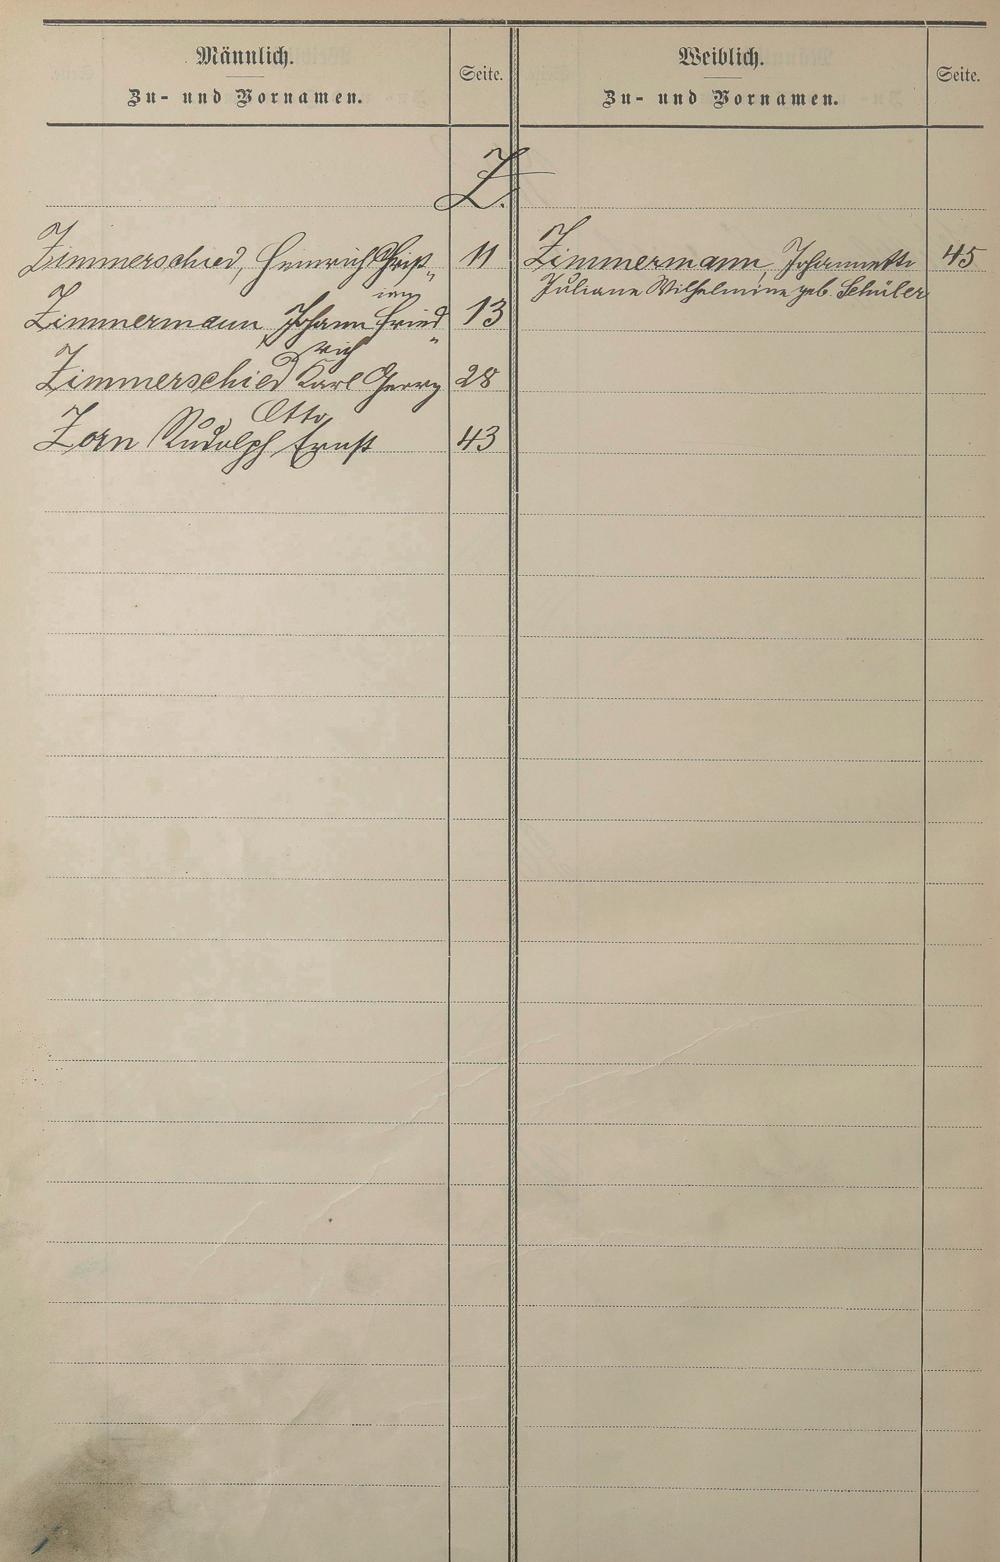 Männlich.
Zu- und Vornamen.
Seite.
Weiblich.
Zu- und Vornamen.
Seite.
Z.
Zimmerschied, Heinrich Christ„ 11
ian
Zimmermann Johann Fried„ 13
rich
Zimmerschied Karl Georg 28
Otto
Zorn Rudolph Ernst 43
Zimmermann, Johannette 45
Juliane Wilhelmine geb. Schüler